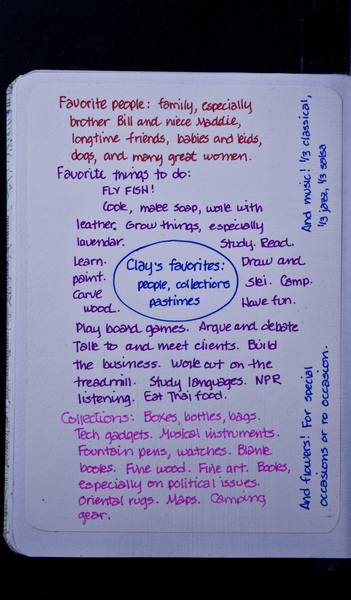 Favorite people: family, especially
brother Bill and niece Maddie,
longtime friends, babies and kids,
dogs, and many great women.
Favorite things to do:
FLY FISH!
Cook, make soap, work with
leather. Grow things, especially
lavendar.
Study. Read.
Learn.
Draw and
paint.
Ski. Camp.
Carve
Have fun.
wood.
Clay's favorites:
people, collections
pastimes
Play board games. Argue and debate
Talk to and meet clients. Build
the business. Work out on the
treadmill. Study languages. NPR
listening. Eat Thai food.
Collections: Boxes, bottles, bags.
Tech gadgets. Musical instruments.
Fountain pens, watches. Blank
books. Fine wood. Fine art. Books,
especially on political issues.
Oriental rugs. Maps. Camping
gear.
And music! 1/3 classical,
1/3 jazz, 1/3 salsa
And flowers! For special
occasions or no occasion.